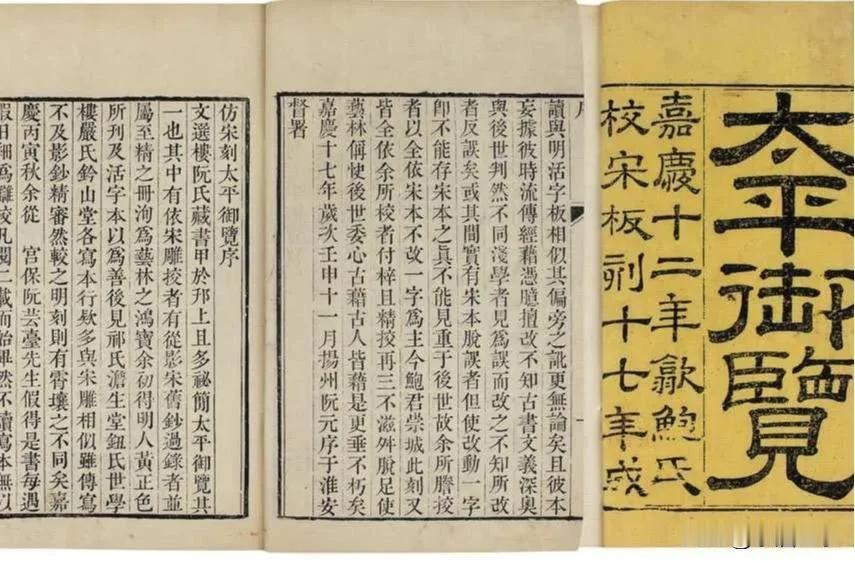 太平御覽
嘉慶十二年歙鮑氏
校宋板刻十七年成
序
讀與明活字板相似其偏旁之訛更無論矣且彼本
妄據彼時流傳經藉憑臆擅改不知古書文義深奥
與後世判然不同淺學者見爲誤而改之不知所改
者反誤矣或其間實有宋本脫誤者但使改動一字
卽不能存宋本之眞不能見重于後世故余所謄挍
者以全依宋本不改一字爲主今鮑君崇城此刻又
皆全依余所挍者付梓且精挍再三不滋舛脫足使
藝林稱快後世委心古藉古人皆藉是更垂不朽矣
嘉慶十七年歲次壬申十一月揚州阮元序于淮安
督署
仿宋刻太平御覽序
文選樓阮氏藏書甲於邦上且多祕簡太平御覽其
一也其中有依宋雕挍者有從影宋舊鈔過錄者並
屬至精之冊洵爲藝林之鴻寶余初得明人黃正色
所刊及活字本以爲善後見祁氏澹生堂鈕氏世學
樓嚴氏鈐山堂各寫本行欵多與宋雕相似雖傳寫
不及影鈔精審然較之明刻則有霄壤之不同矣嘉
慶丙寅秋余從 宮保阮芸臺先生假得是書每遇
假日細爲讎挍凡閱二載而始畢然不讀寫本無以